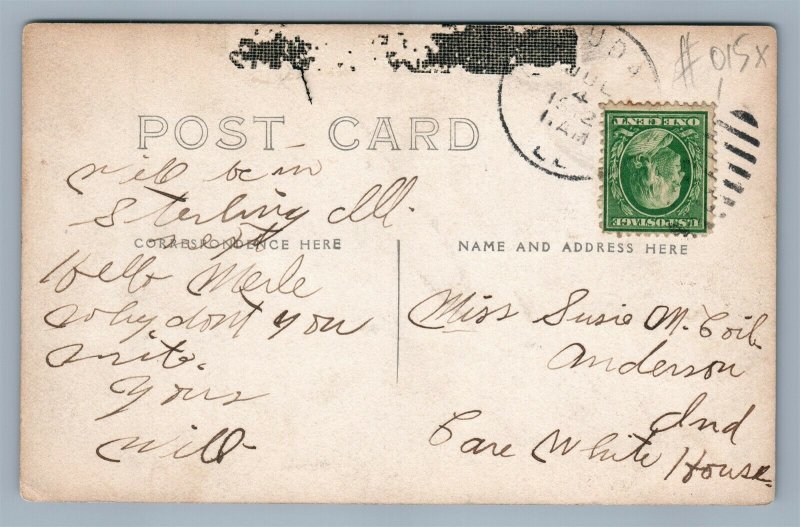 POST CARD
will be in
Sterling Ill.
next
CORRESPONDENCE HERE
Hello Merle
why dont you
write.
Yours
Will
NAME AND ADDRESS HERE
Miss Susie M. Coil
Anderson
Ind
Care White House
#015x
JUL
4
1 AM
U.S. POSTAGE
ONE CENT